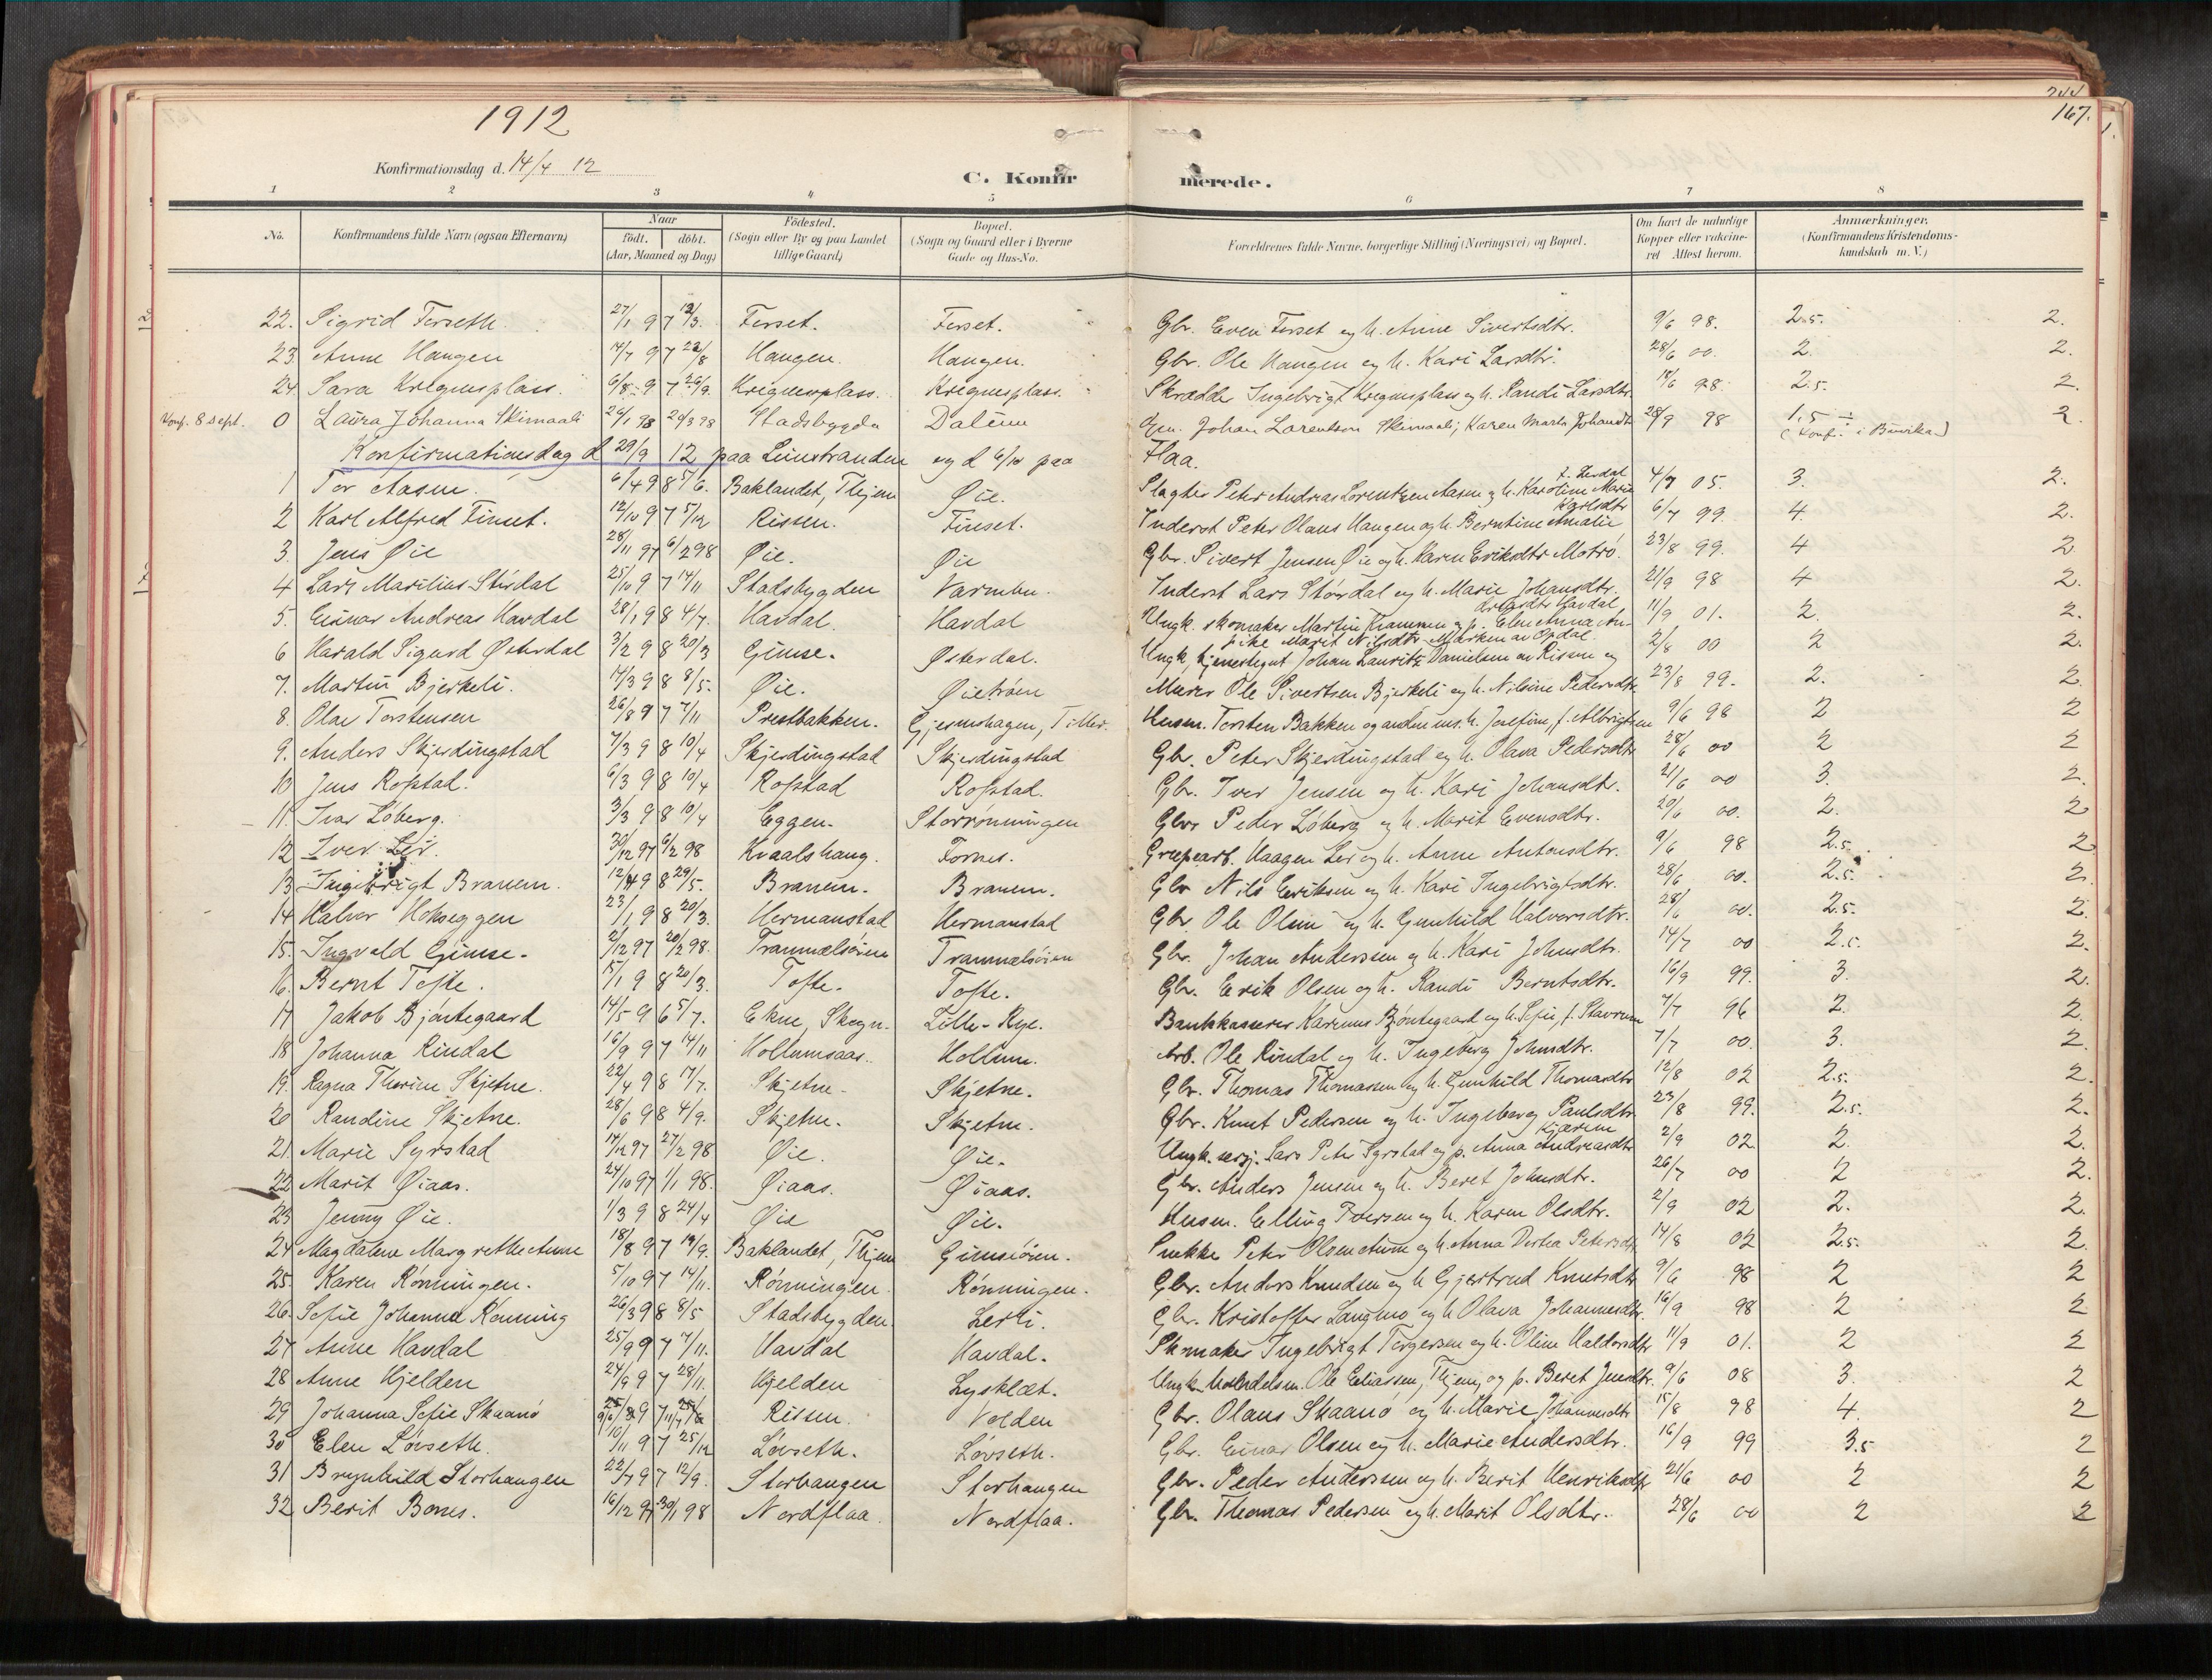 244
167.
1912
Konfirmationsdag d. 14/4 12
C. Konfirmerede.
1 2 3 4 5 6 7 8
No.
Konfirmandens fulde Navn (ogsaa Efternavn)
Naar
født. døbt.
(Aar, Maaned og Dag)
Fødested.
(Sogn eller By og paa Landet
tillige Gaard)
Bopæl.
(Sogn og Gaard eller i Byerne
Gade og Hus-No.
Forældrenes fulde Navne, borgerlige Stilling (Næringsvei) og Bopæl.
Om havt de naturlige
Kopper eller vakcine-
ret Attest herom.
Anmærkninger.
(Konfirmandens Kristendoms-
kundskab m. V.)
22. Sigrid Ferseth. 27/1 97 13/3. Ferset. Ferset. Gbr. Even Ferset og h. Anne Sivertsdtr. 9/6 98. 2.5. 2.
23 Anne Haugen 14/7 97 22/8 Haugen. Haugen. Gbr. Ole Haugen og h. Kari Larsdtr. 28/6 00. 2. 2.
24. Sara Kregnesplass. 6/8 97 26/9. Kregnesplass. Kregnesplass. Skrædder Ingebrigt Kregnesplass og h. Randi Larsdtr. 18/6 98. 2.5. 2.
Konf. 8 sept. 0 Laura Johanna Skimaali 24/1 98 20/3 98 Stadsbygda Daleum Gm. Johan Lorentsen Skimaali, Karen Marta Johansdtr 28/9 98 1.5 ÷ 2.
(Konf. i Buvika)
Konfirmationsdag d 29/9 12 paa Leinstranden og d 6/10 paa Flaa.
1 Tor Aasen. 6/4 98 5/6. Baklandet, Thjem Øie. Slagter Peter Andreas Lorentzen Aasen og h. Karoline Marie 4/7 05. 3. 2.
2 Karl Alfred Finset. 12/10 97 5/12 Rissen. Finset. Inderst Peter Olaus Haugen og h. Berntine Amalie Karlsdtr 6/7 99. 4. 2.
3. Jens Øie 28/11 97 6/2 98 Øie. Øie Gbr. Sivert Jensen Øie og h. Karen Eriksdtr Motrø. 23/8 99. 4 2.
4 Lars Marilius Størdal 25/10 97 14/11 Stadsbygden Varmbu. Inderst Lars Størdal og h. Marie Johansdtr. 21/9 98 4 2.
5. Einar Andreas Havdal 28/1 98 4/7. Havdal. Havdal Ungk. skomaker Martin Krammen og p. Elen Anna An-
dreasdtr Havdal 11/9 01. 2. 2.
6 Harald Sigurd Østerdal 3/2 98 20/3 Gimse. Østerdal. Ungk, tjenestegut Johan Lauritz Danielsen av Rissen og
pike Marit Nilsdtr Marken av Opdal 2/8 00 2 2.
7. Martin Bjerkeli. 14/3 98 8/5. Øie. Øietrøen Murer Ole Sivertsen Bjerkeli og h. Nilsine Pedersdtr 23/8 99. 2. 2.
8. Olav Torstensen 26/8 97 7/11 Prestbakken. Gjesmshagen, Tiller. Husm. Torsten Bakken og anden ins. h. Josefine, f. Albrigtsen 9/6 98 2 2
9. Anders Skjerdingstad 7/3 98 10/4 Skjerdingstad Skjerdingstad Gbr. Peter Skjerdingstad og h. Olava Pedersdtr 28/6 00 2 2
10 Jens Rofstad. 6/3 98 10/4 Rofstad Rofstad. Gbr. Iver Jensen og h. Kari Johansdtr. 21/6 00 3. 2.
11. Ivar Løberg. 3/3 98 10/4 Eggen. Storrønningen Gbr. Peder Løberg og h. Marit Evensdtr. 20/6 00. 2. 2
12 Iver Ler. 30/12 97 6/2 98 Kvaalshaug. Fornes. Grubearb. Haagen Ler og h. Anne Antonsdtr. 9/6 98 2.5. 2
13 Ingebrigt Branem. 12/4 98 29/5. Branem. Branem. Gbr Nils Eriksen og h. Kari Ingebrigtsdtr. 28/6 00. 2.5. 2.
14 Halvor Hokseggen 23/1 98 20/3. Hermanstad Hermanstad Gbr. Ole Olsen og h. Gunhild Halvorsdtr. 28/6 00. 2.5. 2.
15. Ingvald Gimse. 2/12 97 20/2 98. Trammelsøien Trammelsøien Gbr. Johan Anderssen og h. Kari Johnsdtr. 14/7 00 2.5. 2.
16. Bernt Tofte. 15/1 98 20/3. Tofte. Tofte. Gbr. Erik Olsen og h. Randi Berntsdtr. 16/9 99. 3. 2.
17 Jakob Bjøntegaard 14/5 96 5/7. Ekne, Skogn. Lille-Rye. Bankkasserer Karenus Bjøntegaard og h. Sofie, f. Stavrum 7/7 96 2. 2.
18 Johanna Rindal 16/9 97 14/11 Hollumsaas. Hollum. Arb. Ole Rindal og h. Ingeborg Johnsdtr. 7/7 00. 3. 2.
19. Ragna Therine Skjetne. 22/4 98 17/7. Skjetne. Skjetne. Gbr. Thomas Thomassen og h. Gunhild Thomasdtr 12/8 02 2.5. 2.
20 Randine Skjetne. 28/6 98 4/9. Skjetne. Skjetne. Gbr. Knut Pedersen og h. Ingeborg Paulsdtr 23/8 99. 2.5. 2.
21. Marie Syrstad 17/12 97 27/2 98 Øie. Øie. Ungk. sersj. Lars Peter Syrstad og p. Anna Andreasdtr Kjæren 2/9 02 2. 2.
22 Marit Øiaas. 24/10 97 1/1 98. Øiaas. Øiaas. Gbr. Anders Jensen og h. Beret Johnsdtr. 26/7 00 2 2.
23 Jenny Øie. 1/3 98 24/4 Øie Øie. Husm. Elling Iversen og h. Karen Olsdtr. 2/9 02 2. 2.
24 Magdalene Margrethe Aune 18/8 97 19/9. Baklandet, Thjem Gimsøien. Snekker Peter Olsen Aune og h. Anna Dortea Petersdtr 14/8 02 2.5. 2.
25. Karen Rønningen. 5/10 97 14/11. Rønningen. Rønningen. Gbr. Anders Knudsen og h Gjertrud Knutsdtr 9/6 98 2 2
26. Sofie Johanna Rønning 26/3 98 8/5 Stadsbygden. Lerli. Gbr. Kristoffer Langmo og h Olava Johannesdtr. 16/9 98 2 2
27 Anne Havdal 25/9 97 7/11. Havdal Havdal. Skomaker Ingebrigt Torgersen og h. Oline Haldorsdtr 11/9 01. 2 2
28 Anne Hjelden 24/9 97 28/11. Hjelden Lysklæt. Ungk. Handelsm. Ole Eliassen, Thjem, og p. Beret Jensdtr. 9/6 08 3. 2
29 Johanna Sofie Skaanø Rissen. Volden Gbr. Olaus Skaanø og h. Marie Johannesdtr 15/8 98 4. 2
30 Elen Løvseth. 10/11 97 25/12 Løvseth. Løvseth. Gbr. Einar Olsen og h. Marie Andersdtr. 16/9 99 3.5 2
31 Brynhild Storhaugen 22/7 97 12/9. Storhaugen Storhaugen Gbr. Peder Anderssen og h. Berit Henriksdtr 21/6 00 2 2
32 Berit Bones. 16/12 97 30/1 98 Nordflaa. Nordflaa. Gbr. Thomas Pedersen og h. Marit Olsdtr. 28/6 00 2 2